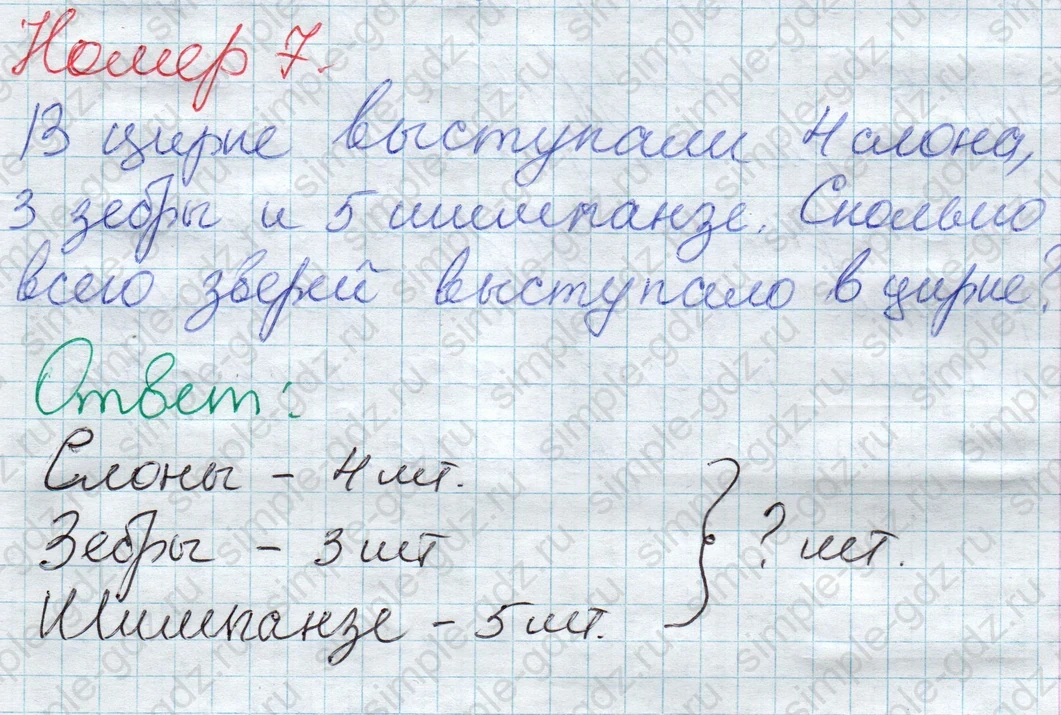 Номер 7.
В цирке выступали 4 слона,
3 зебры и 5 шимпанзе. Сколько
всего зверей выступало в цирке?
Ответ:
Слоны - 4 шт.
Зебры - 3 шт
Шимпанзе - 5 шт.
? шт.
simple-gdz.ru